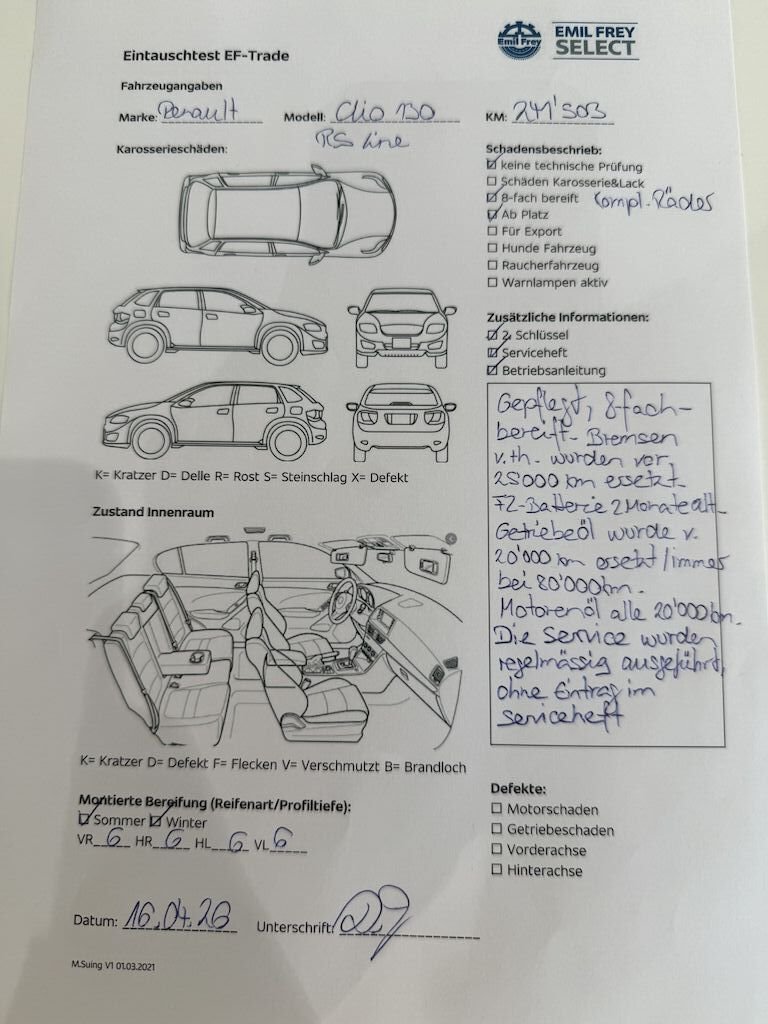 Emil Frey
EMIL FREY
SELECT
Eintauschtest EF-Trade
Fahrzeugangaben
Marke: Renault Modell: Clio 130 KM: 241'503
RS Line
Karosserieschäden:
Schadensbeschrieb:
☑ keine technische Prüfung
☐ Schäden Karosserie&Lack
☑ 8-fach bereift kompl. Räder
☑ Ab Platz
☐ Für Export
☐ Hunde Fahrzeug
☐ Raucherfahrzeug
☐ Warnlampen aktiv
Zusätzliche Informationen:
☑ 2. Schlüssel
☑ Serviceheft
☑ Betriebsanleitung
Gepflegt, 8-fach-
bereift- Bremsen
v.th. wurden vor
25000 km ersetzt-
FZ-Batterie 2 Monate alt-
Getriebeöl wurde v.
20'000 km ersetzt/immer
bei 80'000km.
Motorenöl alle 20'000km.
Die Service wurden
regelmässig ausgeführt,
ohne Eintrag im
Serviceheft
K= Kratzer D= Delle R= Rost S= Steinschlag X= Defekt
Zustand Innenraum
K= Kratzer D= Defekt F= Flecken V= Verschmutzt B= Brandloch
Montierte Bereifung (Reifenart/Profiltiefe):
☑ Sommer ☑ Winter
VR 6 HR 6 HL 6 VL 6
Defekte:
☐ Motorschaden
☐ Getriebeschaden
☐ Vorderachse
☐ Hinterachse
Datum: 16.04.26 Unterschrift:
M.Suing V1 01.03.2021